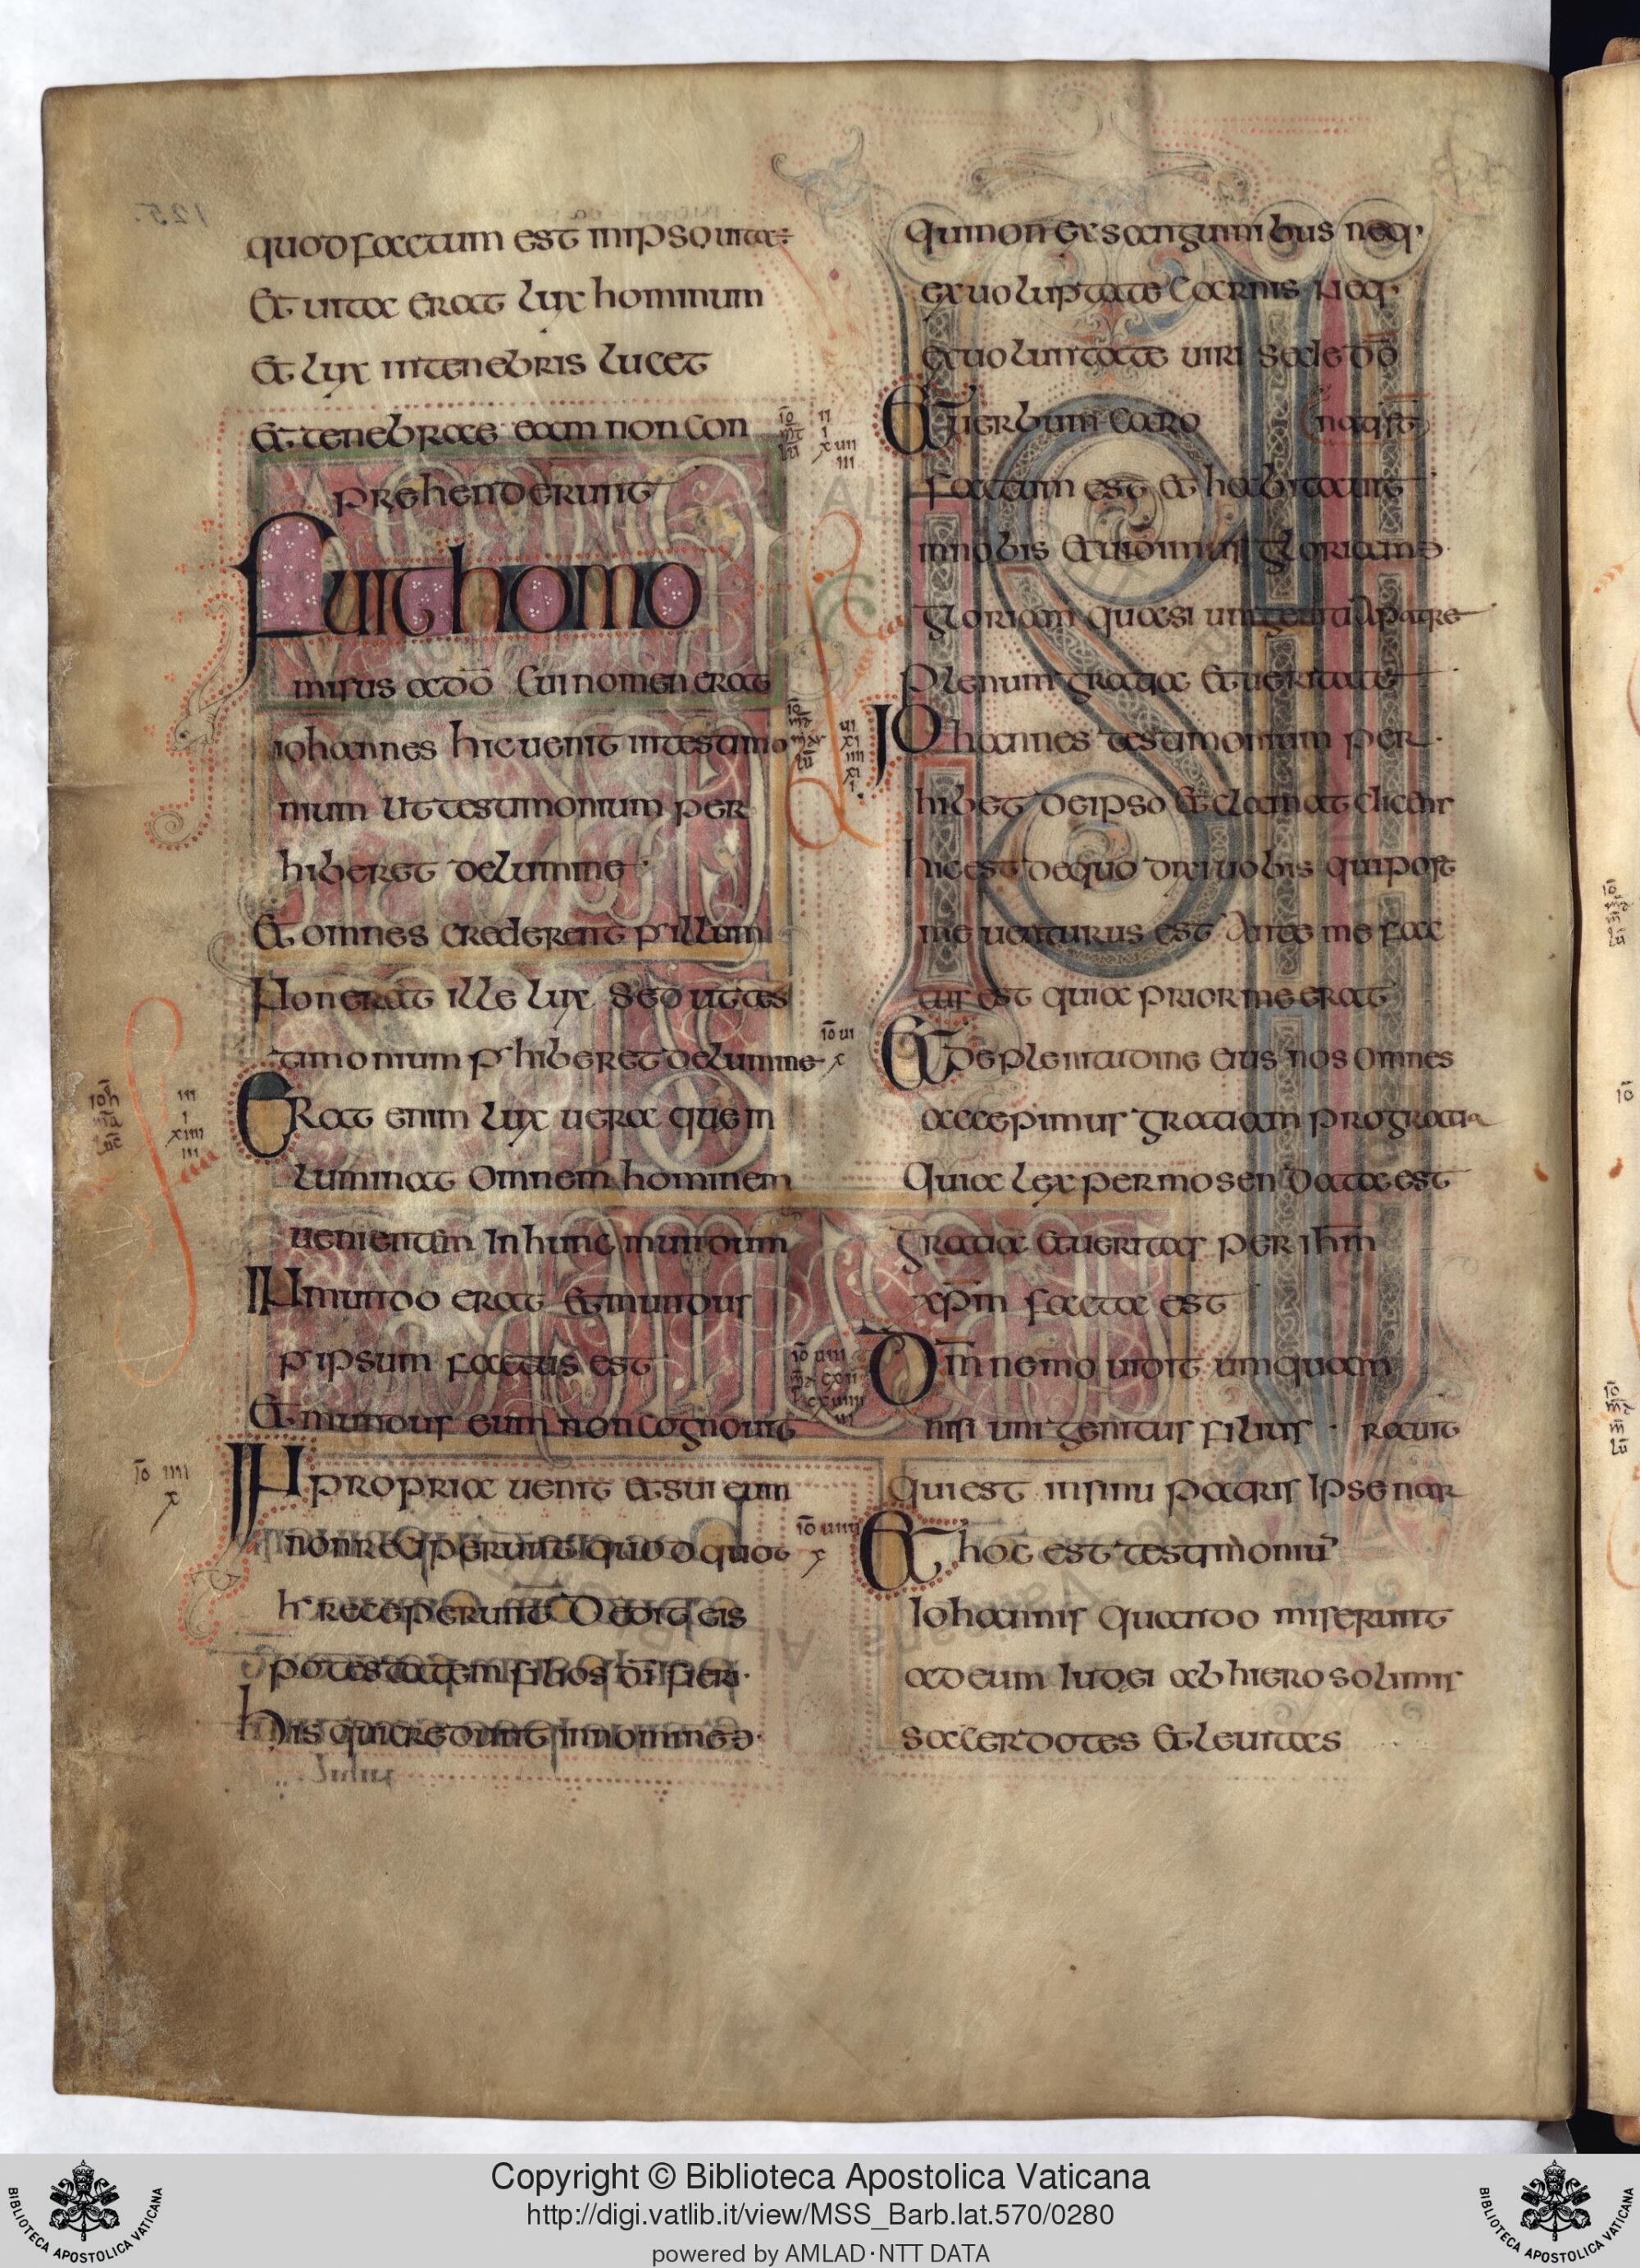 quod factum est in ipso uita
Et uita erat lux hominum
Et lux intenebris lucet
Et tenebrae eam non con
prehenderunt
Fuit homo
misus ad̄ō Cui nomen erat
iohannes hic uenit intestimo
nium ut testimonium per
hiberet delumine
Et omnes crederent p illum
Non erat ille lux Sed uttes
timonium p hiberet delumine
Erat enim lux uera que in
luminat Omnem hominem
uenientem In hunc mundum
IN mundo erat Et mundus
p ipsum factus est
Et mundus eum non cognouit
IN propria uenit et sui eum
non receperunt quodquot
h receperunt Dedit eis
potestatem filios dī fieri
his qui credunt innomine
qui non Ex sanguini bus neq·
ex uoluptate Carnis neq·
ex uoluntate uiri sed e dō
Et uerbum caro
factum est et habitauit
innobis Et uidimus gloriam
gloriam quasi unigeniti Apatre
plenum gratia Et ueritate
Iohannes testimonium per
hibet deipso Et clamat dicens
hic est dequo dixi uobis qui post
me uenturus est Ante me fac
tus est quia prior me erat
Et de plenitudine eius nos omnes
accepimus gratiam pro gratia
Quia lex per mosen data est
gratia Et ueritas per ihm̄
xp̄m facta est
Dm̄ nemo uidit umquam
nisi unigenitus filius · rauit
qui est insinu patris Ipse nar
Et hoc est testimoniū
Iohannis Quando miserunt
ad eum Iudei ab hierosolimis
sacerdotes Et leuitas
Copyright © Biblioteca Apostolica Vaticana
http://digi.vatlib.it/view/MSS_Barb.lat.570/0280
powered by AMLAD·NTT DATA
BIBLIOTECA APOSTOLICA VATICANA
BIBLIOTECA APOSTOLICA VATICANA